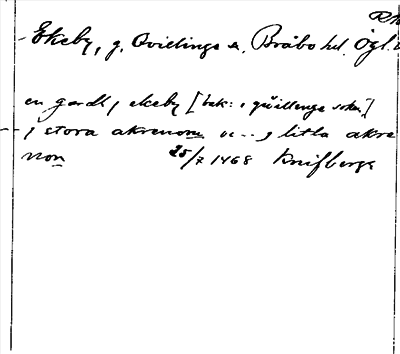 RA
Ekeby, g. Qvillinge sn. Bråbo hd. Ögl.
en gardh j ekeby [bak: i quillenge sokn]
j stora akrenom oc .. j litla akre
nom 25/7 1468 Knifberga